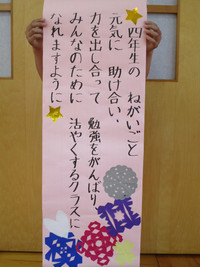 四年生の ねがいごと
元気に 助け合い、
力を出し合って 勉強をがんばり、
みんなのために 活やくするクラスに
なれますように